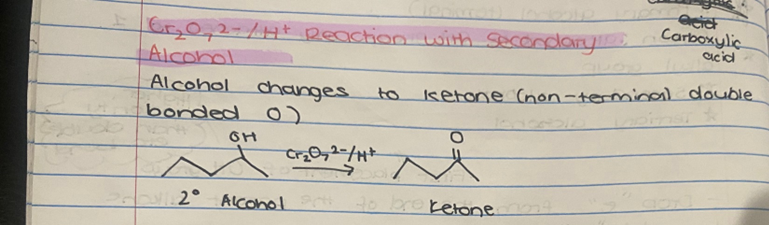 acid
Cr₂O₇²⁻/H⁺ Reaction with Secondary
Carboxylic
acid
Alcohol
Alcohol changes to ketone (non-terminal double
bonded O)
OH
O
Cr₂O₇²⁻/H⁺
2° Alcohol
ketone